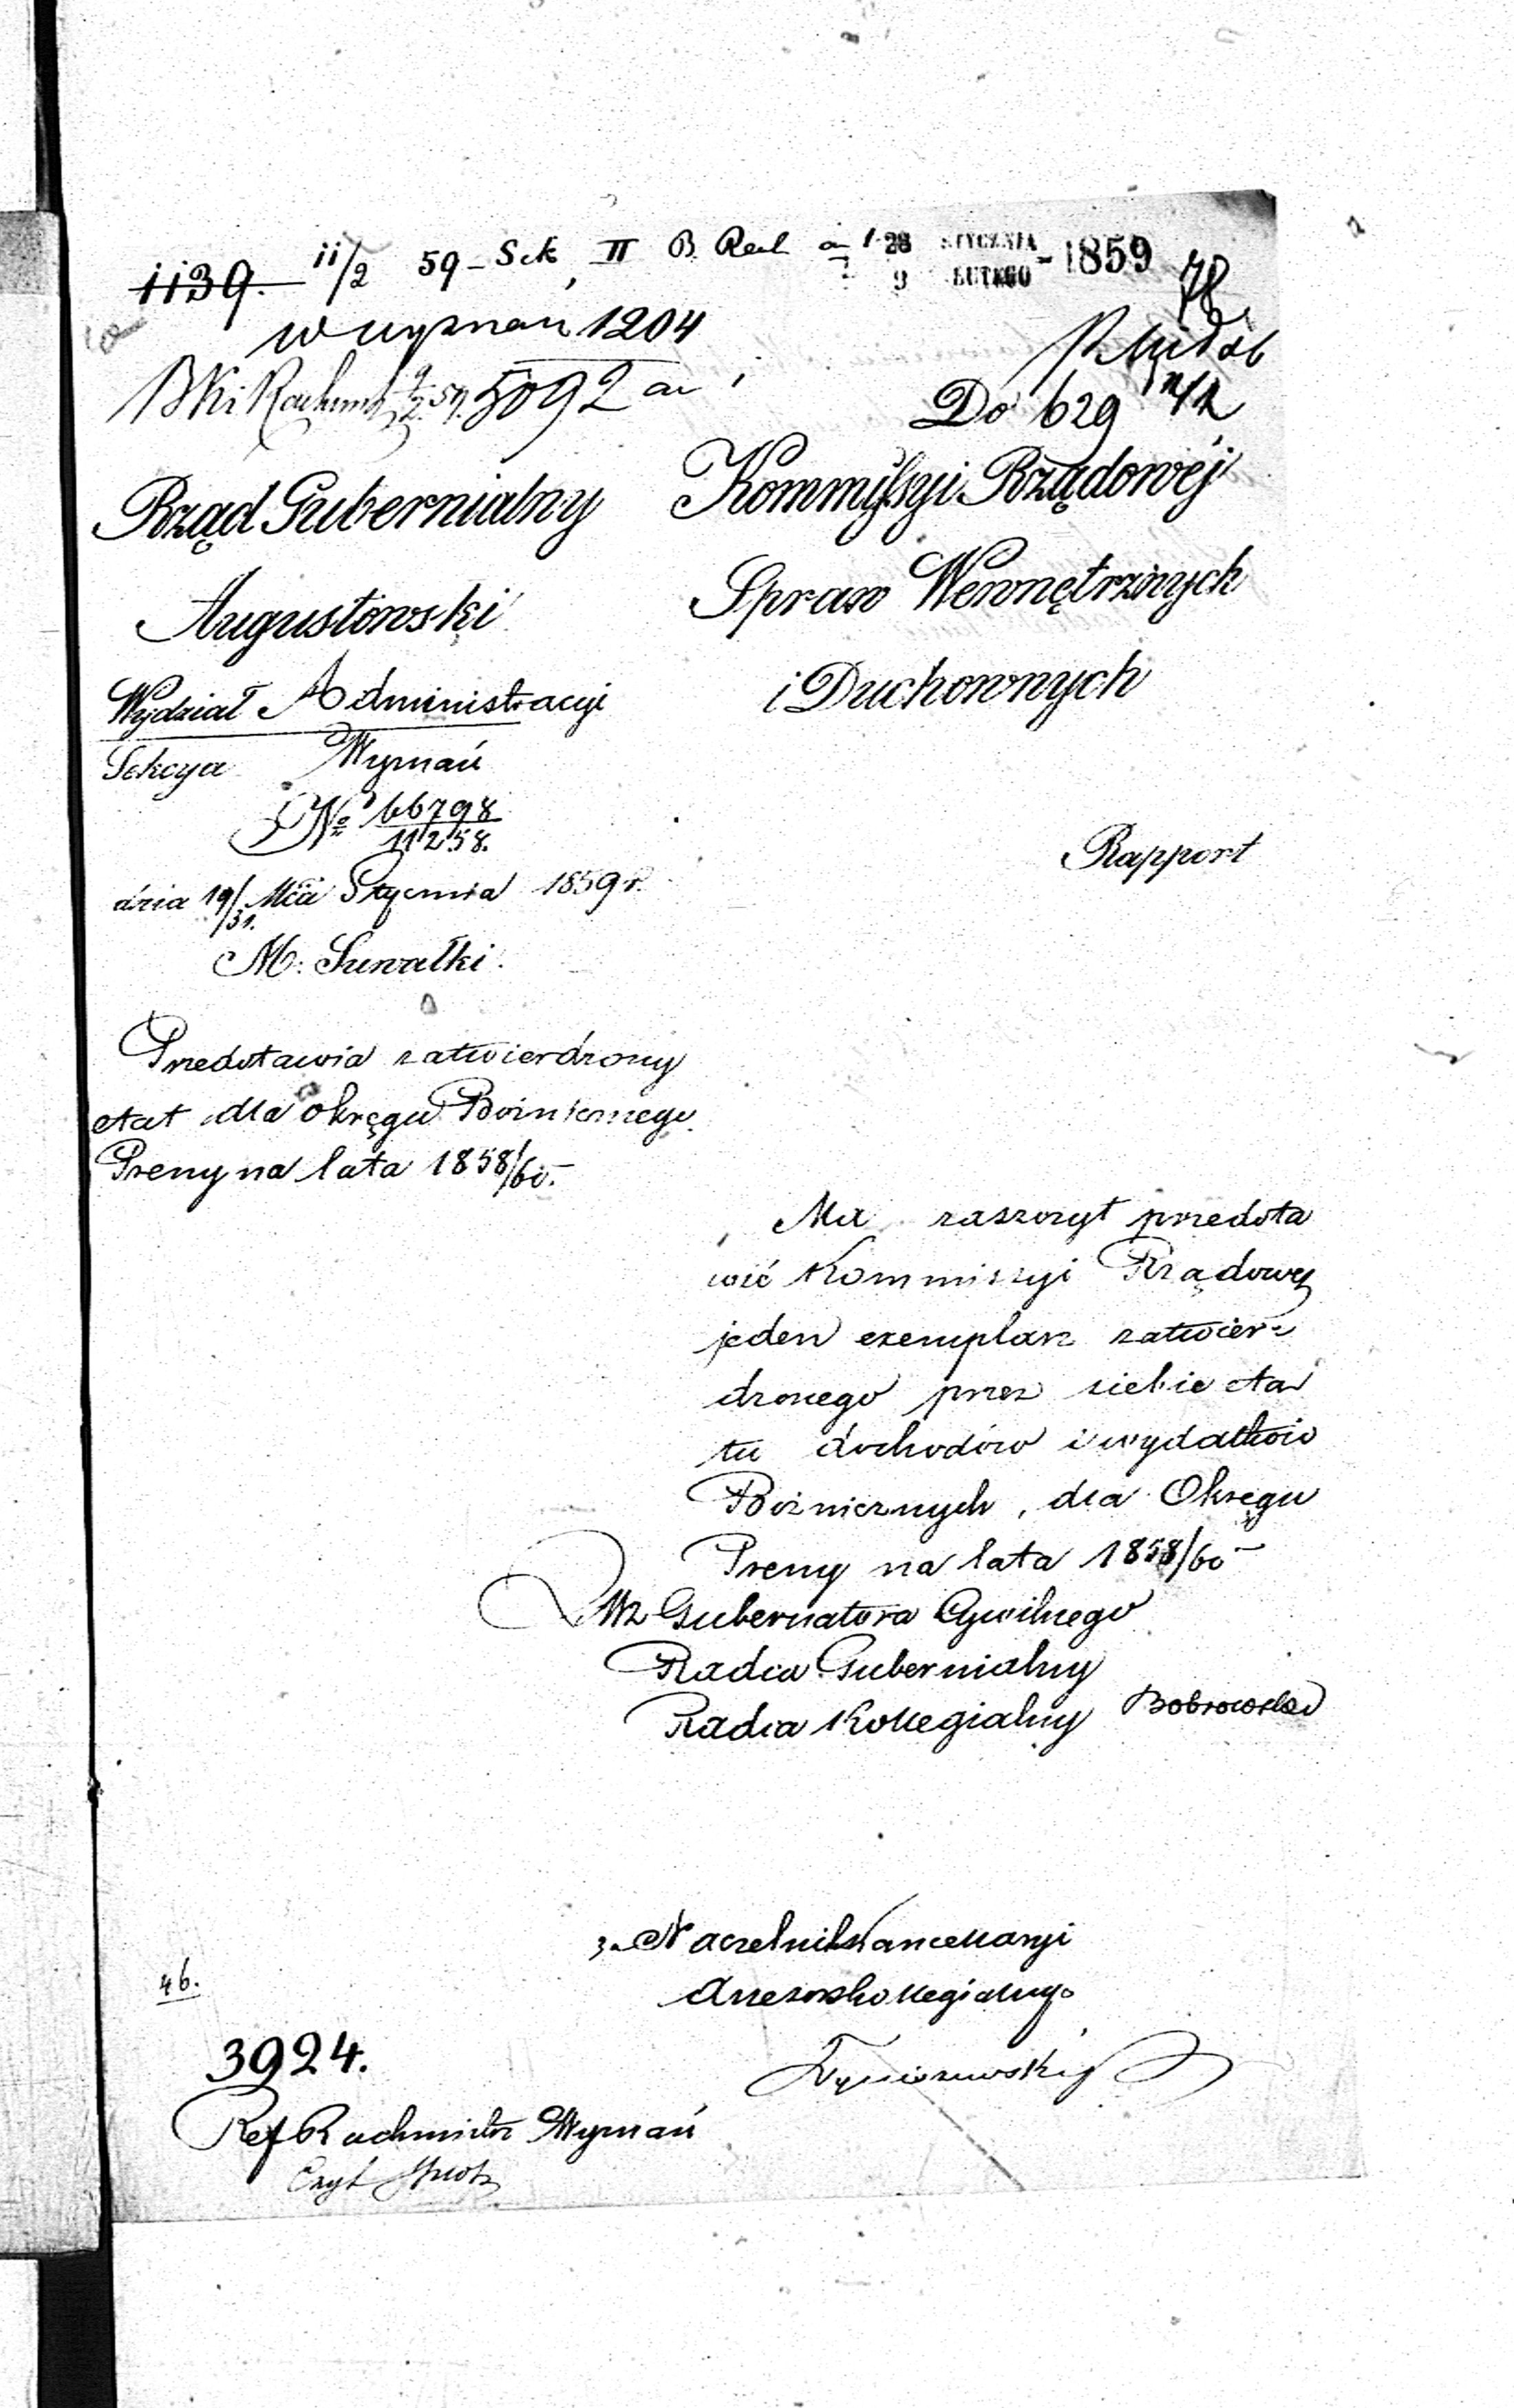 1139. 11/2 59 - Sek. II B. Real 28 STYCZNIA 9 LUTEGO - 1859
78
w wyznań 1204
5092
Do 629
Rząd Gubernialny
Augustowski
Wydział Administracyi
Sekcya Wyznań
№ 66798
11258.
dnia 19/31. Mca Stycznia 1859 r.
M: Suwałki.
Kommissyi Rządowéj
Spraw Wewnętrznych
i Duchownych
Rapport
Przedstawia zatwierdzony
etat dla okręgu Bożnicznego
Preny na lata 1858/60.
Ma zaszczyt przedsta
wić Kommissyi Rządowej
jeden exemplarz zatwier-
dzonego przez siebie eta
tu dochodów i wydatków
Bożnicznych, dla Okręgu
Preny na lata 1858/60
Wz Gubernatora Cywilnego
Radca Gubernialny
Radca Kollegialny Bobrowski
za Naczelnik Kancellaryi
Assessor Kollegialny
46.
3924.
Ref Rachmistrz Wyznań
Czyt